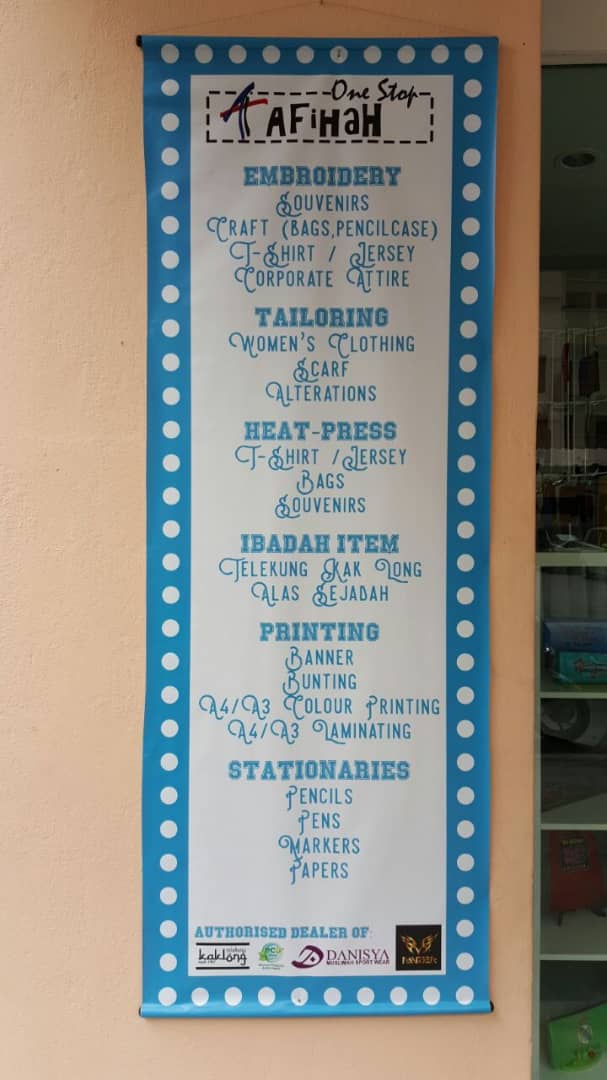 One Stop
AFiHaH
EMBROIDERY
SOUVENIRS
CRAFT (BAGS,PENCILCASE)
T-SHIRT / JERSEY
CORPORATE ATTIRE
TAILORING
WOMEN'S CLOTHING
SCARF
ALTERATIONS
HEAT-PRESS
T-SHIRT / JERSEY
BAGS
SOUVENIRS
IBADAH ITEM
TELEKUNG KAK LONG
ALAS SEJADAH
PRINTING
BANNER
BUNTING
A4/A3 COLOUR PRINTING
A4/A3 LAMINATING
STATIONARIES
PENCILS
PENS
MARKERS
PAPERS
AUTHORISED DEALER OF:
telekung
kaklong
DANISYA
MUSLIMAH SPORT WEAR